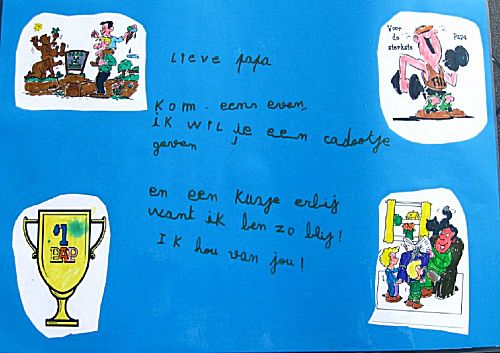 Lieve papa
Kom eens even,
ik wil je een cadootje
geven
en een kusje erbij
want ik ben zo blij!
Ik hou van jou!
Voor Papa
de
sterkste
#1
PAP